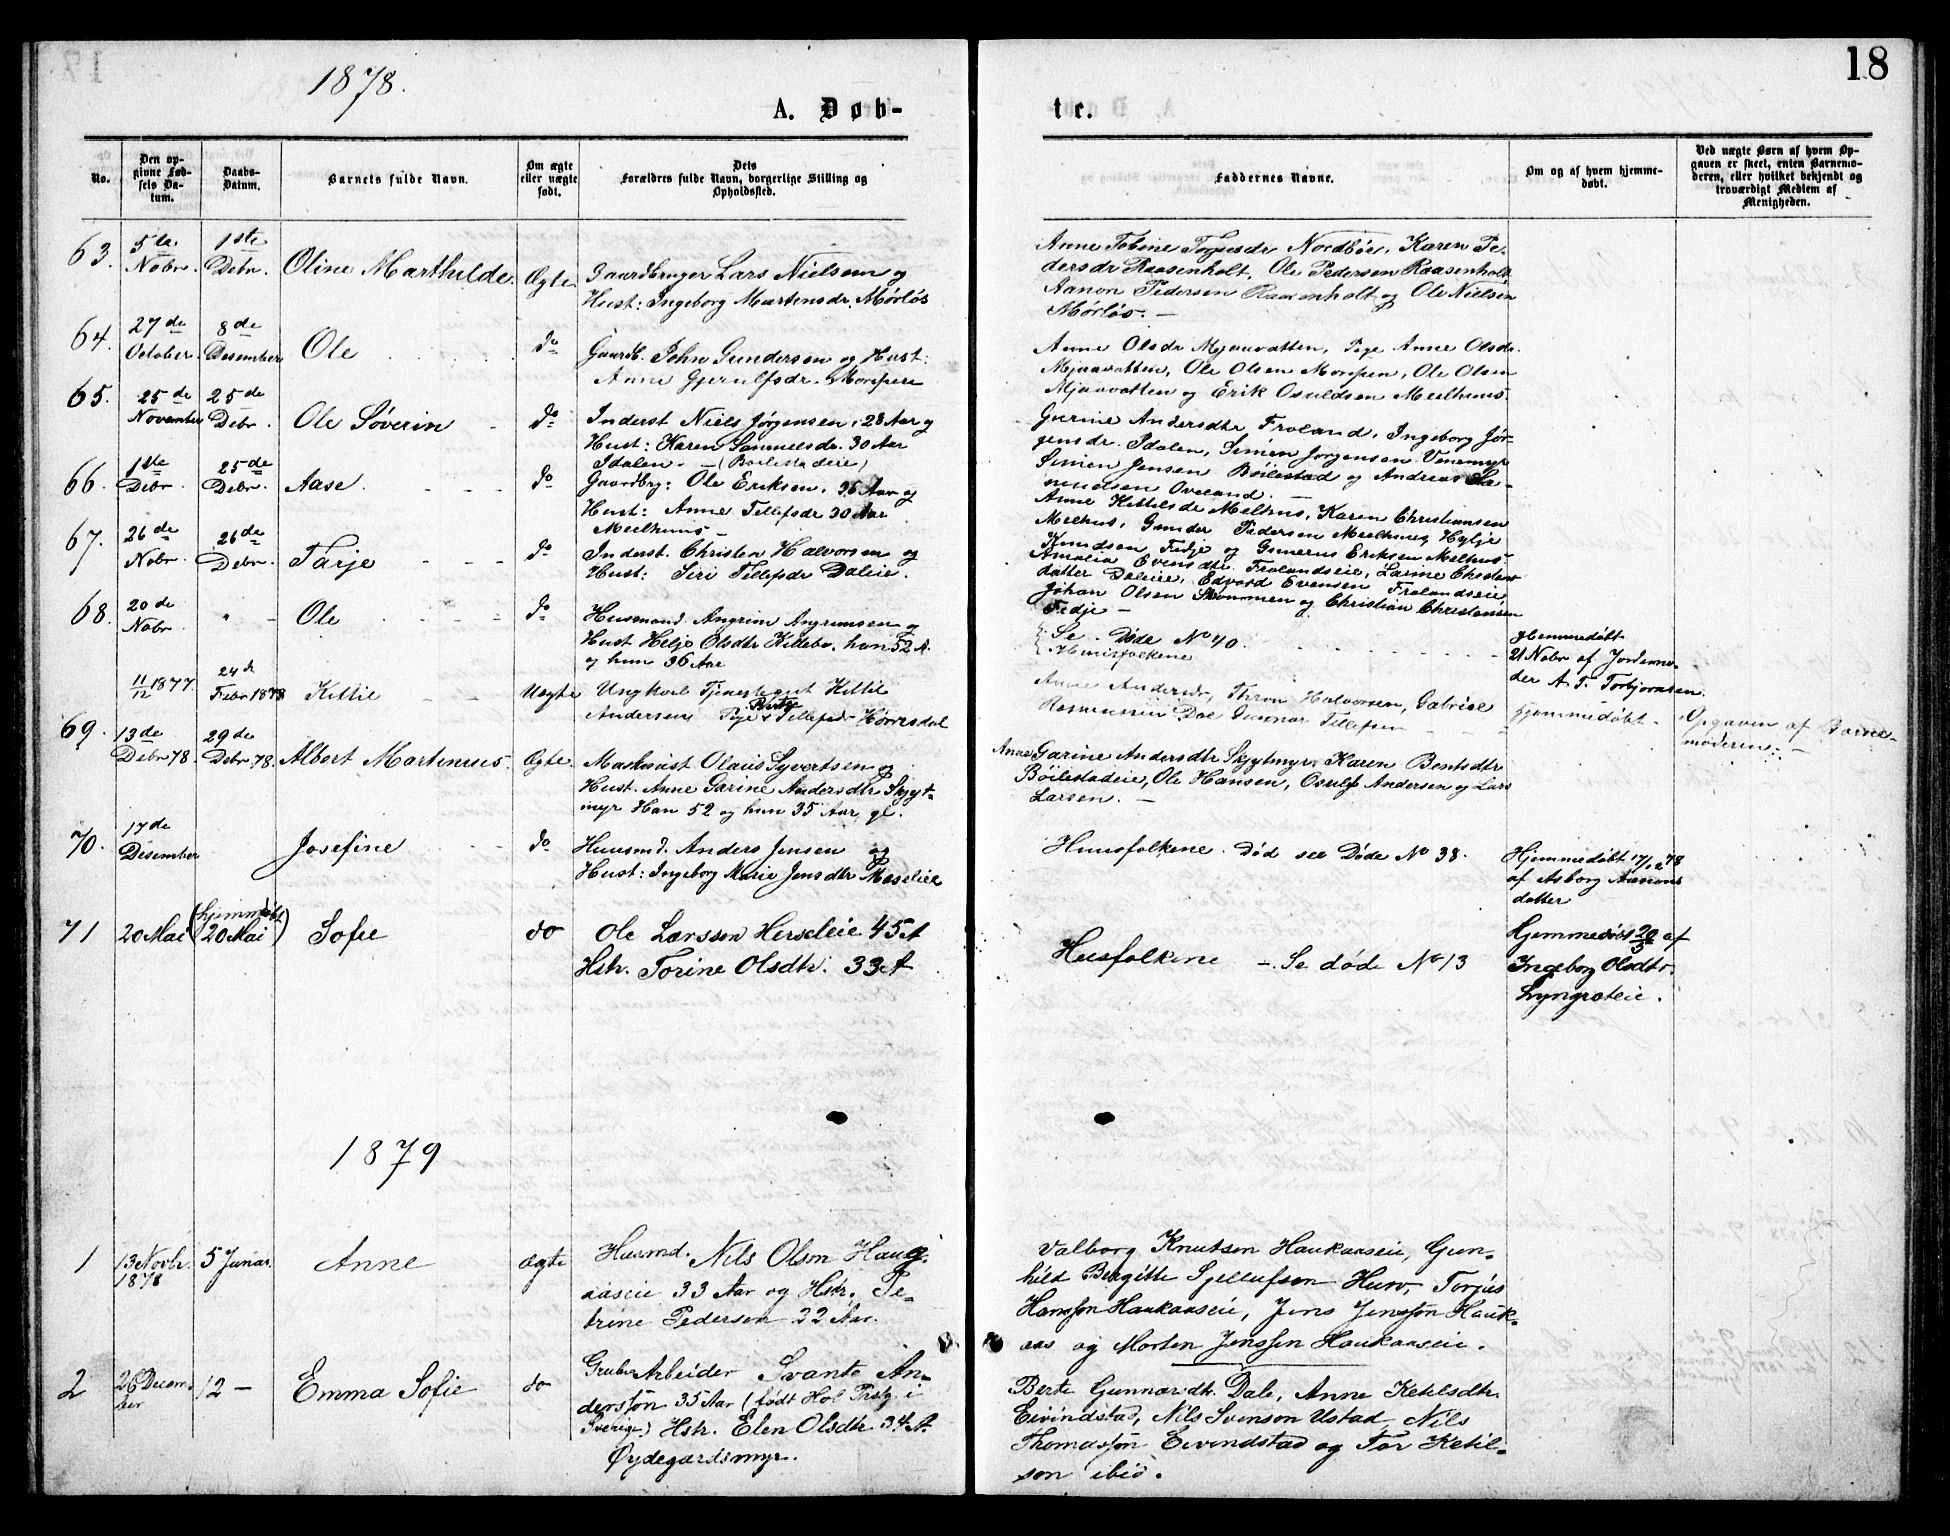 18
1878.
A. Døb-
te.
No.
Den op-
givne Fød-
sels Da-
tum.
Daabs-
Datum.
Barnets fulde Navn.
Om ægte
eller uægte
født.
Dets
Forældres fulde Navn, borgerlige Stilling og
Opholdssted.
Faddernes Navne.
Om og af hvem hjemme-
døbt.
Ved uægte Børn af hvem Op-
gaven er skeet, enten Barnemo-
deren, eller hvilket bekjendt og
troværdigt Medlem af
Menigheden.
63.
5te
Nobr.
1ste
Debr.
Oline Marthilde.
Ægte
Gaardbruger Lars Nielsen og
Hust: Ingeborg Martensdr. Mørløs
Anne Tobine Nordbøe, Karen Pe-
dersdr Raasenholt, Ole Pedersen Raasenholt
Aanon Pedersen Raasenholt og Ole Nielsen
Mørløs. —
64.
27de
October.
8de
Desember
Ole
do
Gaardb. John Gundersen og Hust:
Anne Gjerulfsdr.
Anne Olsdr Mjaavatten, Pige Anne Olsdr.
Mjaavatten, Ole Olsen, Ole Olsen
Mjaavatten og Erik Osuldsen Meelhuus.
65.
25de
November
25de
Debr.
Ole Søverin
do
Inderst Niels Jørgensen, 28 Aar og
Hust: Karen Samuelsdr. 30 Aar
Idalen. — (Bøilestadeie)
Gurine Andersdtr Froland, Ingeborg Jør-
gensdr. Idalen, Simen Jørgensen Venemyr
Simen Jensen Bøilestad og Andreas Sa-
muelsen Oveland. —
66.
1ste
Debr.
25de
Debr.
Aase.
do
Gaardbrg: Ole Eriksen, 36 Aar og
Hust: Anne Tellefsdr 30 Aar
Meelhuus
Anne Kittelsdr Melhus, Karen Christiansen
Meelhus, Gunder Pedersen Meelhuus, Hylje
Knudsen Fedje og Gunerus Eriksen Melhus
67.
26de
Nobr.
26de
Debr.
Tarje
do
Inderst. Christen Halvorsen og
Hust: Siri Tellefsdr Daleie.
Amalia Evensdtr. Frolandseie, Larine Christens
datter Daleie, Edvard Evensen Frolandseie
Johan Olsen og Christian Christensen
Fedje —
68.
20de
Nobr.
" -
Ole
do
Husmand. Angrim Angrimsen og
Hust Helje Olsdtr Killebo, han 52 A.
og hun 36 Aar
Se Døde No 40.
Huusfolkene
Hjemmedøbt
21 Nobr af Jordemo-
der A. T. Torbjørnsen.
11/12 1877.
24d
Febr 1878
Kittil
Uægte
Ungkarl Tjenestegut Kittil
Andersen Pige Tellefsdr
Anne Andersdr, Thron Halvorsen, Gabriel
Rasmussen Dal Gunnar Tellefsen
Hjemmedøbt.
Opgaven af Barne-
moderen. —
69.
13de
Debr 78.
29de
Debr. 78.
Albert Martinius.
Ægte.
Olaus Syvertsen og
Hust. Anne Garine Andersdtr Skyt-
myr Han 52 og hun 35 Aar gl.
Anne Garine Andersdtr Skytmyr, Karen Bentsdtr
Bøilestadeie, Ole Hansen, Osulf Andersen og Lars
Larsen. —
70.
17de
Desember
Josefine
do
Huusmd. Anders Jensen og
Hust: Ingeborg Marie Jensdtr Moseleie
Huusfolkene. Død see Døde No 38.
Hjemmedøbt 17/12 78
af Asborg Aanons
datter
71
20 Mai
(hjemmedøbt
20 Mai)
Sofie
do
Ole Larsson Herseleie 45 A
Hstr. Torine Olsdtr. 33 A
Husfolkene — Se døde No 13
Hjemmedøbt 20/5 af
Ingeborg Olsdtr.
Lyngroteie.
1879
1
13 Novbr.
1878
5 Januar.
Anne
ægte
Husmd. Nils Olson Haug-
aaseie 33 Aar og Hstr. Pe-
trine Pedersen 22 Aar.
Valborg Knutsen Haukaaseie, Gun-
hild Birgitte Tjellufsen Huro, Torjus
Hansson Haukaaseie, Jens Jensson Hauk-
aas og Morten Jensson Haukaaseie.
2
26 Decem-
ber
12 —
Emma Sofie
do
Grube Arbeider Svante An-
derssøn 35 Aar (født Hol Prstg. i
Sverige) Hstr. Elen Olsdtr 34 A.
Øydegardsmyr.
Berte Gunnarsdtr. Dale, Anne Ketilsdtr.
Eivindstad, Nils Svenson Ustad, Nils
Thomassøn Eivindstad og Tor Ketil-
son ibid.